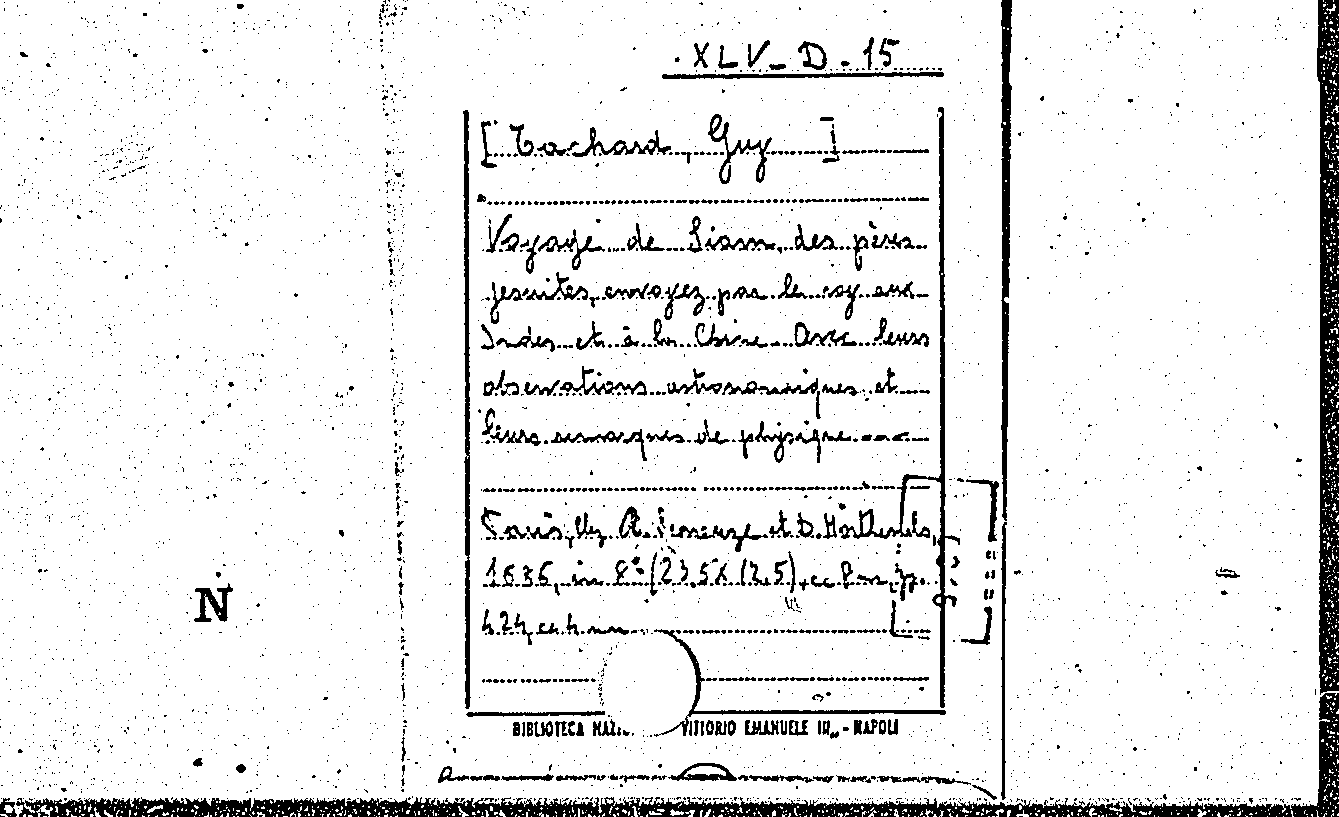 XLV-D-15
[Tachard, Guy]
Voyage de Siam, des pères
jesuites, envoyez par le roy aux
Indes et à la Chine. Avec leurs
observations astronomiques et
leurs remarques de physique
Paris, chez A. Seneuze et D. Horthemels,
1686, in 8º (23,5x17,5), cc 8 nn, pp.
424, cc 4 nn
N
BIBLIOTECA VITTORIO EMANUELE III - NAPOLI